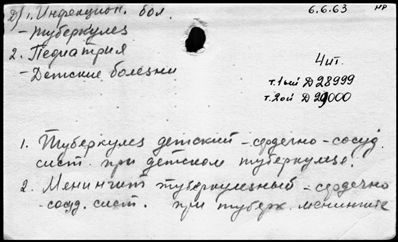 д/ 1. Инфекцион. бол. 6.6.63 нр
- Туберкулез
2. Педиатрия
- Детские болезни
4 ит.
т. 1ый Д 28999
т. 2ой Д 29000
1. Туберкулез детский - сердечно-сосуд.
сист. при детском туберкулезе.
2. Менингит туберкулезный - сердечно
- сосуд. сист. при туберк. менингите